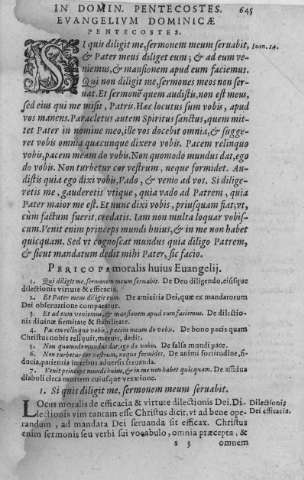 IN DOMIN. PENTECOSTES. 645
EVANGELIVM DOMINICÆ
PENTECOSTES.
SI quis diligit me, sermonem meum seruabit, Ioan. 14.
& Pater meus diliget eum; & ad eum ve-
niemus, & mansionem apud eum faciemus.
Qui non diligit me, sermones meos non ser-
uat. Et sermonē quem audistis, non est meus,
sed eius qui me misit, Patris. Hæc locutus sum vobis, apud
vos manens. Paracletus autem Spiritus sanctus, quem mit-
tet Pater in nomine meo, ille vos docebit omnia, & sugge-
ret vobis omnia quæcunque dixero vobis. Pacem relinquo
vobis, pacem meam do vobis. Non quomodo mundus dat, ego
do vobis. Non turbetur cor vestrum, neque formidet. Au-
distis quia ego dixi vobis, Vado, & venio ad vos. Si dilige-
retis me, gauderetis vtique, quia vado ad Patrem, quia
Pater maior me est. Et nunc dixi vobis, priusquam fiat, vt,
cùm factum fuerit, credatis. Iam non multa loquar vobis-
cum. Venit enim princeps mundi huius, & in me non habet
quicquam. Sed vt cognoscat mundus quia diligo Patrem,
& sicut mandatum dedit mihi Pater, sic facio.
PERICOPÆ morales huius Euangelij.
1. Qui diligit me, sermonem meum seruabit. De Deo diligendo, eiúsque
dilectionis virtute & efficacia.
2. Et Pater meus diliget eum. De amicitia Dei, quæ ex mandatorum
Dei obseruatione comparatur.
3. Et ad eum veniemus, & mansionem apud eum faciemus. De dilectio-
nis diuinæ firmitate & stabilitate.
4. Pacem relinquo vobis, pacem meam do vobis. De bono pacis quam
Christus nobis reliquit, meruit, dedit.
5. Non quomodo mundus dat, ego do vobis. De falsa mundi pace.
6. Non turbetur cor vestrum, neque formidet. De animi fortitudine, fi-
ducia, patientia in rebus aduersis seruanda.
7. Venit princeps mundi huius, & in me non habet quicquam. De astutia
diaboli circa mortem cuiusque versantis.
1. Si quis diligit me, sermonem meum seruabit.
LOcus moralis de efficacia & virtute dilectionis Dei. Di- Dilectionis
lectionis vim tantam esse Christus dicit, vt ad bene ope- Dei efficacia.
randum, ad mandata Dei seruanda sit efficax. Christus
enim sermonis seu verbi sui vocabulo, omnia præcepta, &
s 3 omnem